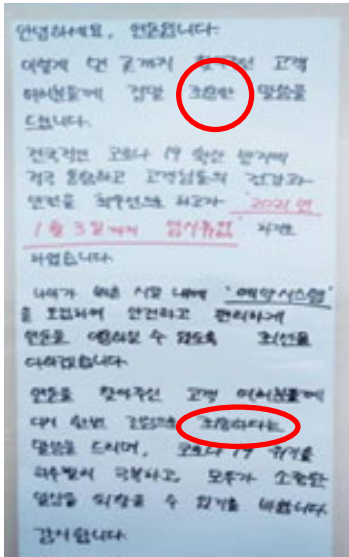 안녕하세요, 연돈입니다.
이렇게 먼 곳까지 찾아주신 고객
여러분들께 정말 죄송한 말씀을
드립니다.
전국적인 코로나 19 확산 방지에
적극 동참하고 고객님들의 건강과
안전을 최우선으로 하고자 '2021년
1월 3일까지 임시휴업' 하기로
하였습니다.
나아가 빠른 시일 내에 '예약시스템'
을 도입하여 안전하고 편리하게
연돈을 이용하실 수 있도록 최선을
다하겠습니다.
연돈을 찾아주신 고객 여러분들께
다시 한번 죄송하다는
말씀을 드리며, 코로나 19 위기를
극복하고, 모두가 소중한
일상을 되찾을 수 있기를 바랍니다.
감사합니다.